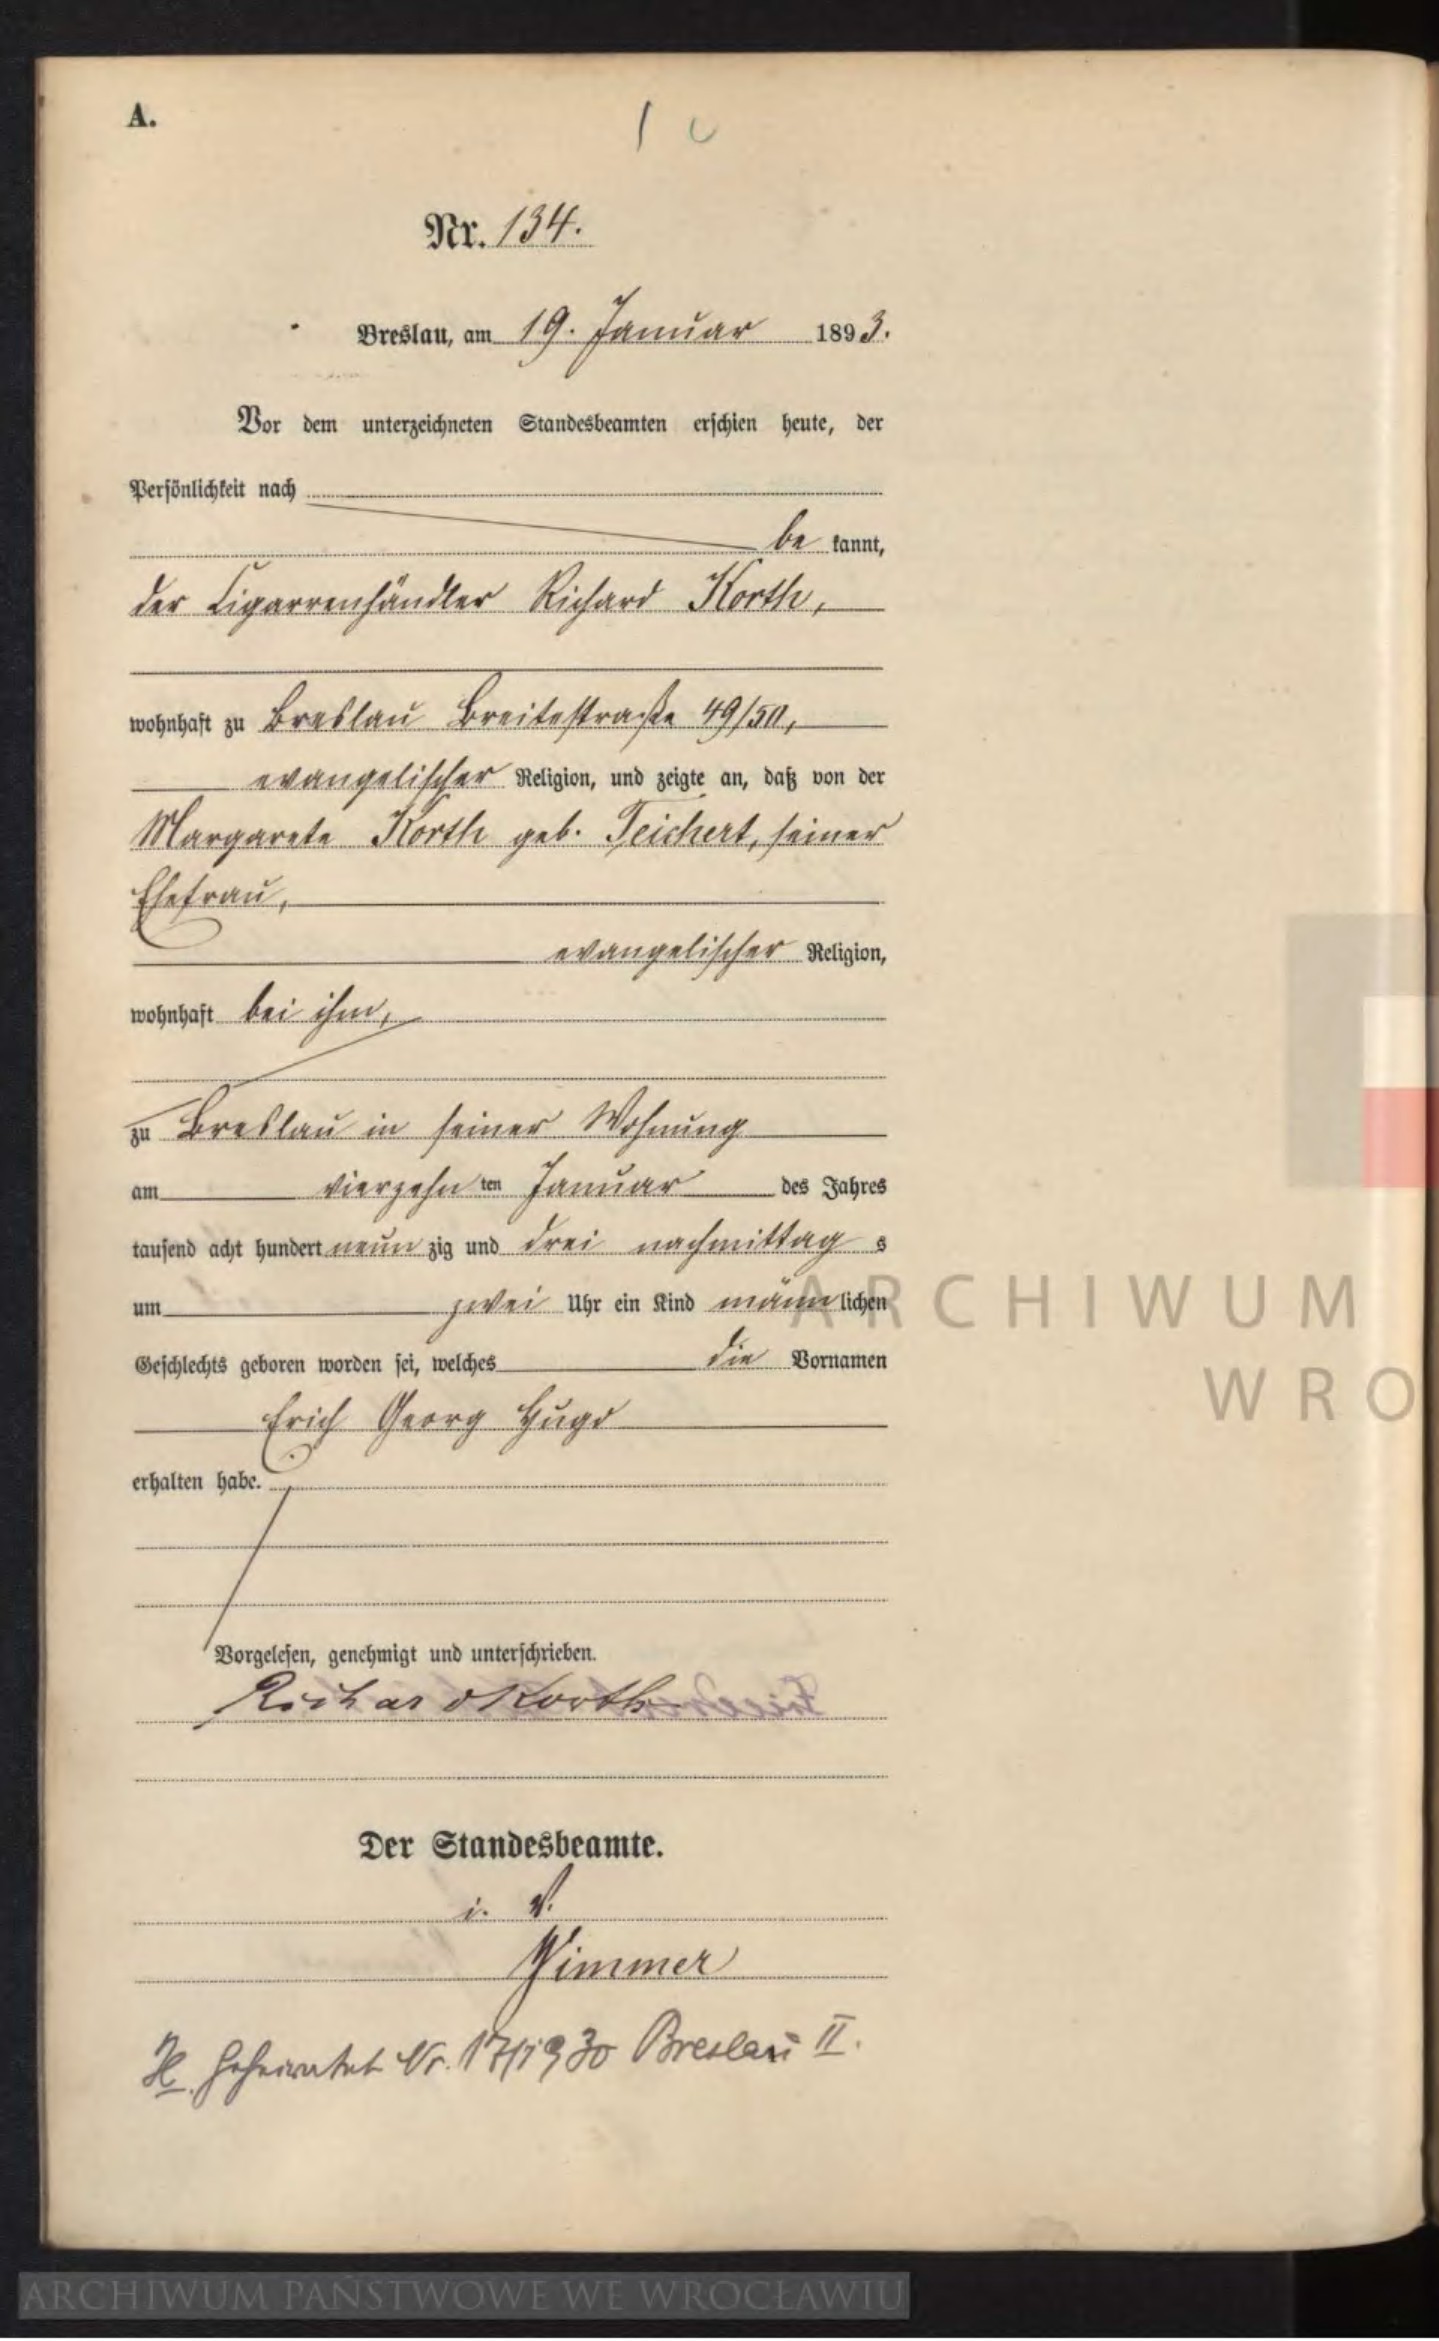 A.
Nr. 134.
Breslau, am 19. Januar 1893.
Vor dem unterzeichneten Standesbeamten erschien heute, der
Persönlichkeit nach
be kannt,
der Cigarrenhändler Richard Korth,
wohnhaft zu Breslau Breitestraße 49/50,
evangelischer Religion, und zeigte an, daß von der
Margarete Korth geb. Teichert, seiner
Ehefrau,
evangelischer Religion,
wohnhaft bei ihm,
zu Breslau in seiner Wohnung
am vierzehn ten Januar des Jahres
tausend acht hundert neun zig und drei nachmittag s
um zwei Uhr ein Kind männ lichen
Geschlechts geboren worden sei, welches die Vornamen
Erich Georg Hugo
erhalten habe.
Vorgelesen, genehmigt und unterschrieben.
Richard Korth
Der Standesbeamte.
i. V.
Wimmer
Geheiratet Nr. 17/1930 Breslau II.
ARCHIWUM
WRO
ARCHIWUM PAŃSTWOWE WE WROCŁAWIU